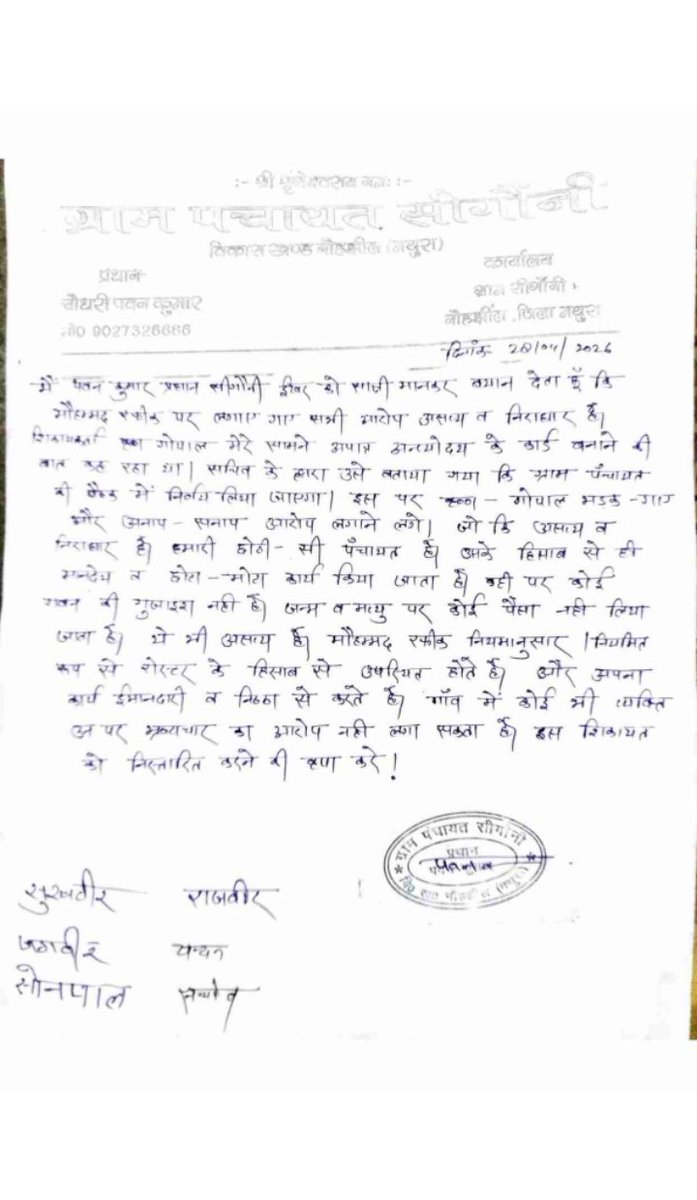 ग्राम पंचायत सीगौंनी
विकास खण्ड नौहझील (मथुरा)
प्रधान
चौधरी पवन कुमार
मो0 9027326686
कार्यालय
ग्राम सीगौंनी,
नौहझील, जिला मथुरा
दिनांक 20/04/2026
मैं पवन कुमार प्रधान सीगौनी ईश्वर को साक्षी मानकर बयान देता हूँ कि
मौहम्मद रफीक पर लगाए गए सभी आरोप असत्य व निराधार है।
शिकायकर्ता गोपाल मेरे सामने अपात्र अन्त्योदय के कार्ड बनाने की
बात कह रहा था। सचिव के द्वारा उसे बताया गया कि ग्राम पंचायत
की बैठक में निर्णय लिया जाएगा। इस पर गोपाल भडक-गए
और अनाप-सनाप आरोप लगाने लगे। जो कि असत्य व
निराधार है। हमारी छोटी-सी पंचायत है। उसके हिसाब से ही
मानदेय व छोटा-मोटा कार्य किया जाता है। कही पर कोई
गबन की गुंजाइश नही है। जन्म व मत्यु पर कोई पैसा नही लिया
जाता है। ये भी असत्य है। मौहम्मद रफीक नियमानुसार / नियमित
रूप से रोस्टर के हिसाब से उपस्थित होते है। और अपना
कार्य ईमानदारी व निष्ठा से करते है। गाँव में कोई भी व्यक्ति
पर भ्रष्टाचार का आरोप नही लगा सकता है। इस शिकायत
को निस्तारित करने की कृपा करे!
ग्राम पंचायत सीगौनी
प्रधान
सुखवीर राजवीर
जगवीर चन्दन
सोनपाल